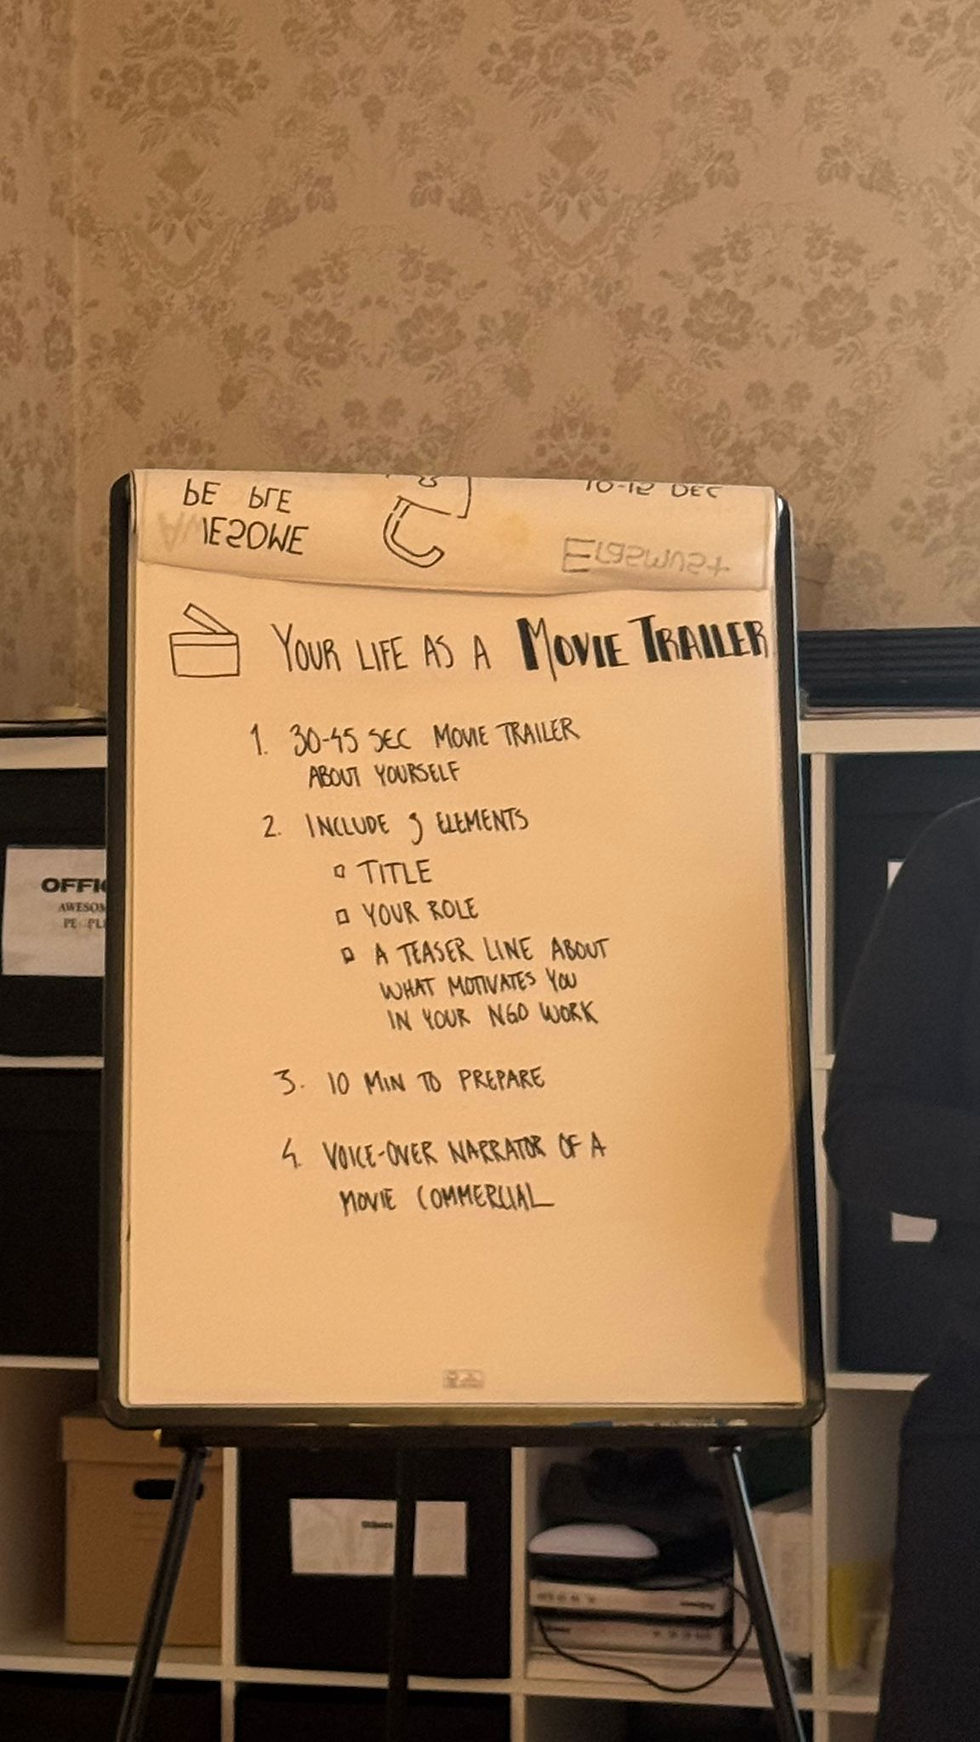 10-12 DEC
Erasmus+
AWESOME
YOUR LIFE AS A MOVIE TRAILER
1. 30-45 SEC MOVIE TRAILER
ABOUT YOURSELF
2. INCLUDE 3 ELEMENTS
TITLE
YOUR ROLE
A TEASER LINE ABOUT
WHAT MOTIVATES YOU
IN YOUR NGO WORK
3. 10 MIN TO PREPARE
4. VOICE-OVER NARRATOR OF A
MOVIE COMMERCIAL